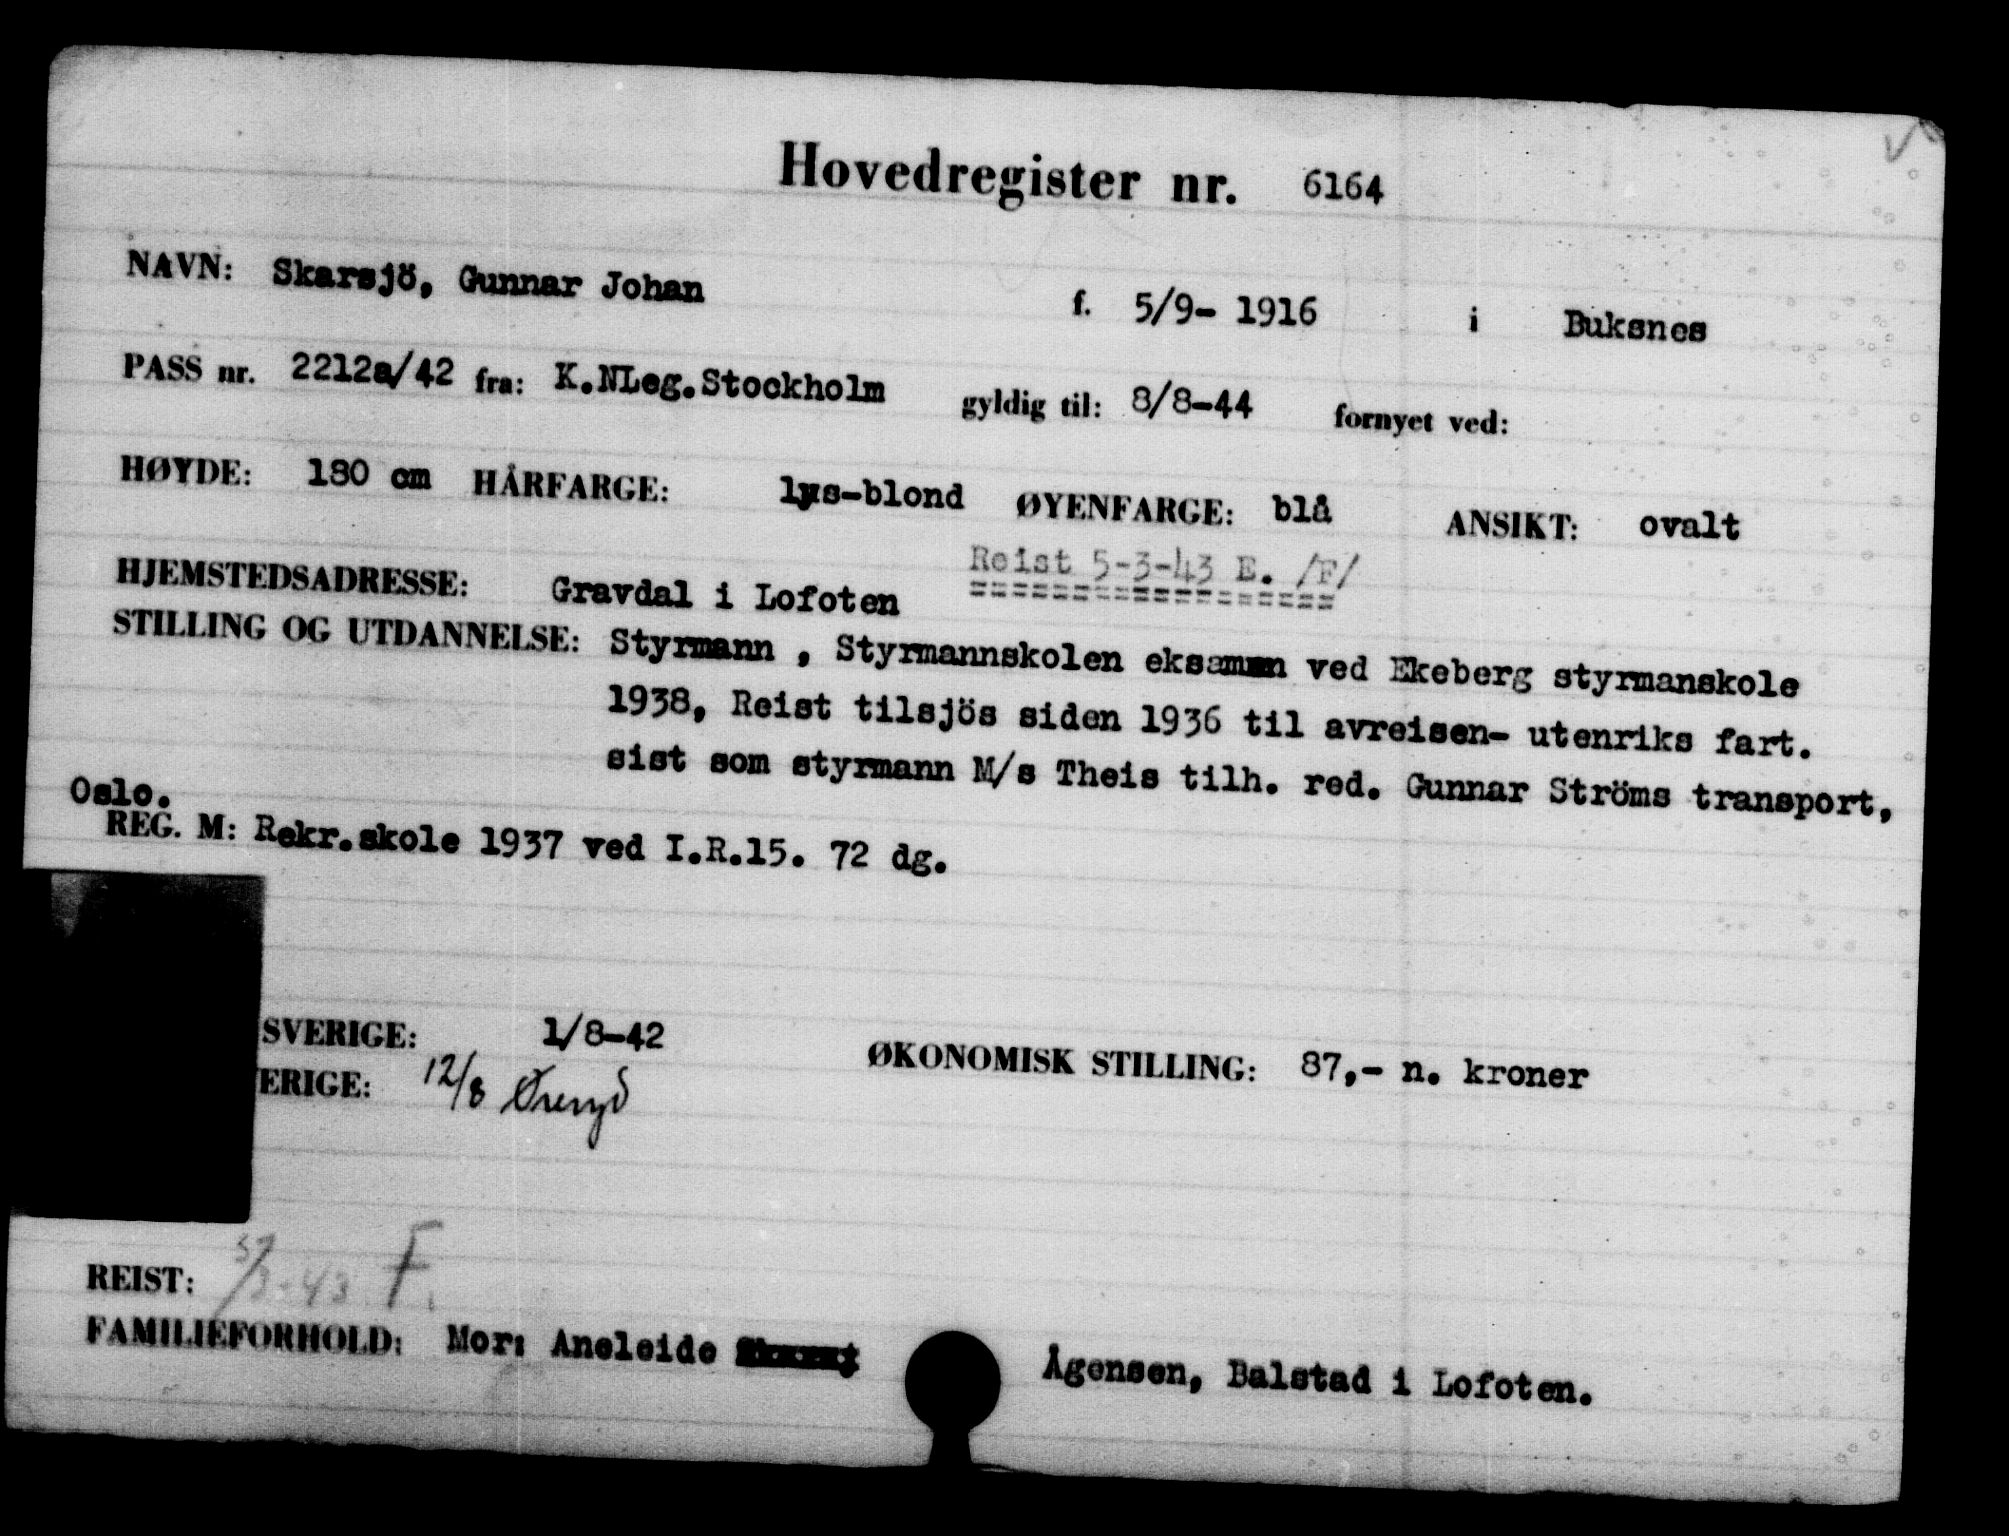 Hovedregister nr. 6164
NAVN: Skarsjö, Gunnar Johan f. 5/9- 1916 i Buksnes
PASS nr. 2212a/42 fra: K.NLeg.Stockholm gyldig til: 8/8-44 fornyet ved:
HØYDE: 180 cm HÅRFARGE: lys-blond ØYENFARGE: blå ANSIKT: ovalt
Reist 5-3-43 E. /F/
HJEMSTEDSADRESSE: Gravdal i Lofoten ==================
STILLING OG UTDANNELSE: Styrmann , Styrmannskolen eksamen ved Ekeberg styrmanskole
1938, Reist tilsjös siden 1936 til avreisen- utenriks fart.
sist som styrmann M/s Theis tilh. red. Gunnar Ströms transport,
Oslo.
REG. M: Rekr.skole 1937 ved I.R.15. 72 dg.
SVERIGE: 1/8-42
ØKONOMISK STILLING: 87,- n. kroner
ERIGE: 12/8 Øreryd
REIST: 5/3-43 F.
FAMILIEFORHOLD: Mor: Aneleide Ågensen, Balstad i Lofoten.